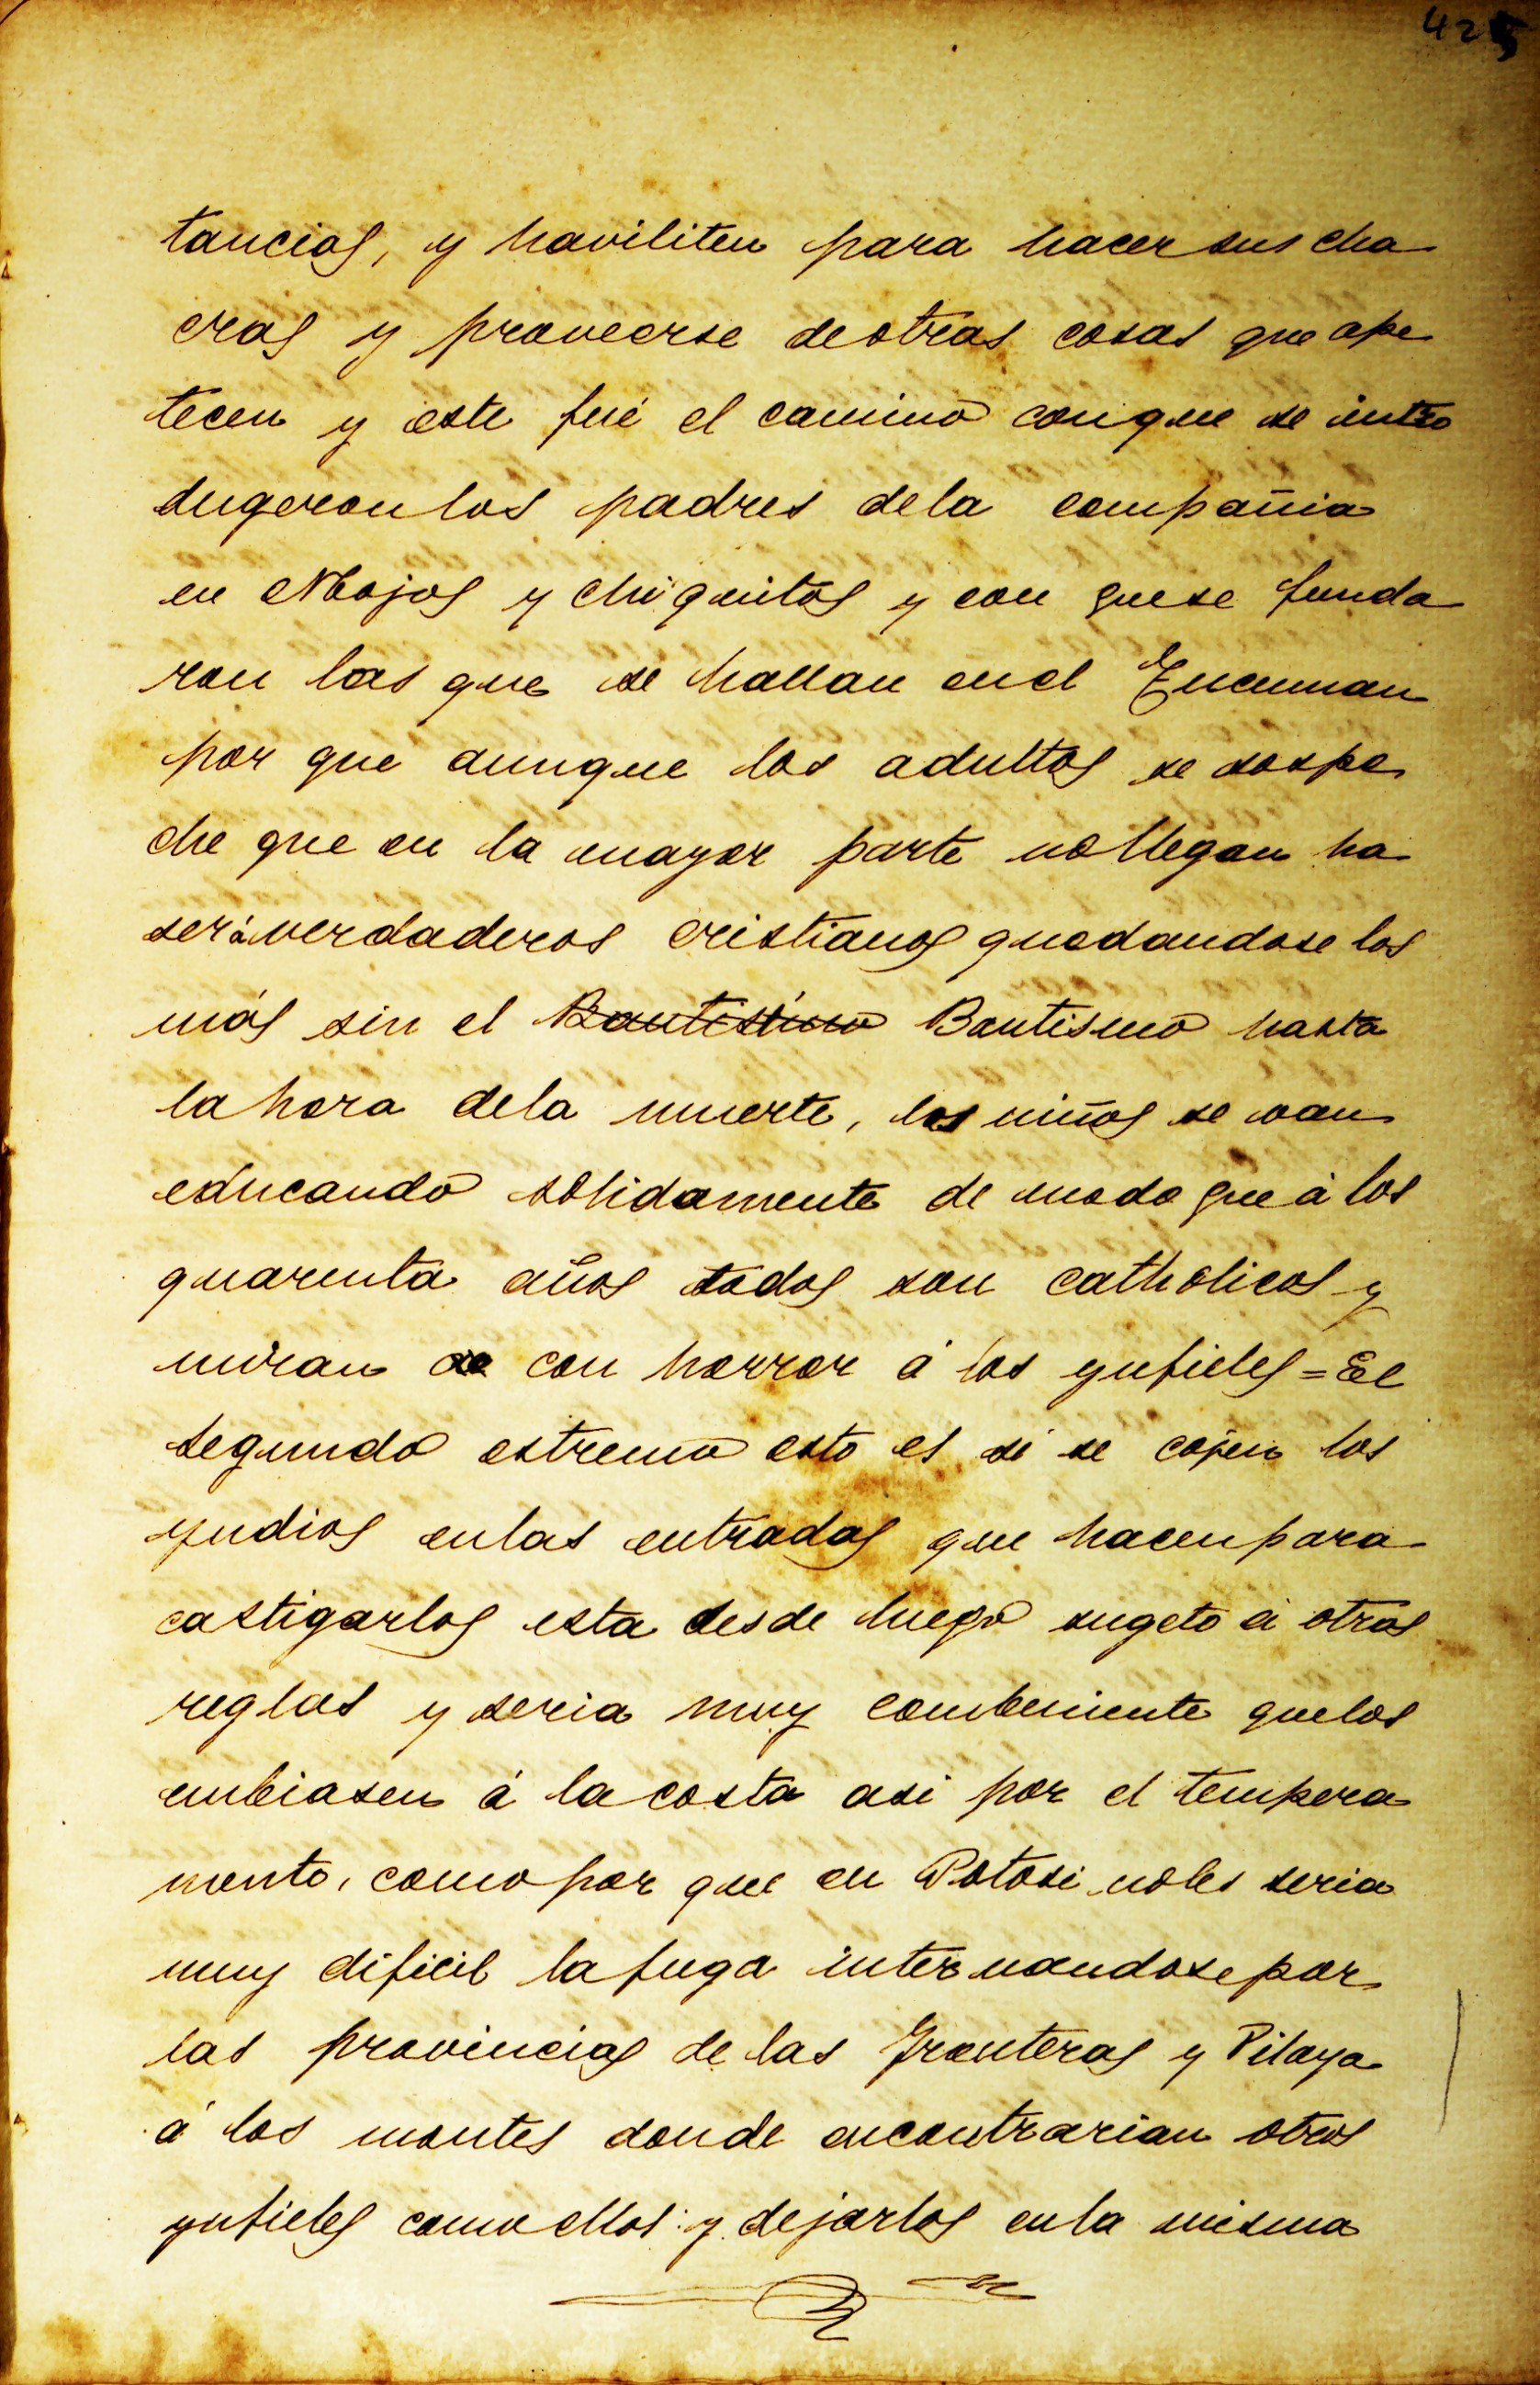 425
tancias, y haviliten para hacer sus cha
cras y proveerse deotras cosas que ape
tecen y este fué el camino conque se intro
dugeron los padres dela compañia
en Mojos y chiquitos y con quese funda
ron las que se hallan enel Tucuman
por que aunque los adultos se sospe
che que en la mayor parte nollegan ha
ser á verdaderos cristianos quedandose los
más sin el Bautismo Bautismo hasta
la hora dela muerte, los niños se van
educando solidamente de modo que á los
quarenta años todos son catholicos y
miran con horror á los ynfieles = El
segundo estremo esto es si se cojen los
yndios enlas entradas que hacenpara
castigarlos esta desde luego sugeto á otras
reglas y seria muy combeniente quelos
embiasen á lacosta asi por el tempera
mento, comopor que en Potosi noles seria
muy dificil lafuga internandosepor
las provincias de las Fronteras y Pilaya
á los montes donde encontrarian otros
ynfieles comoellos y dejarlos enla misma